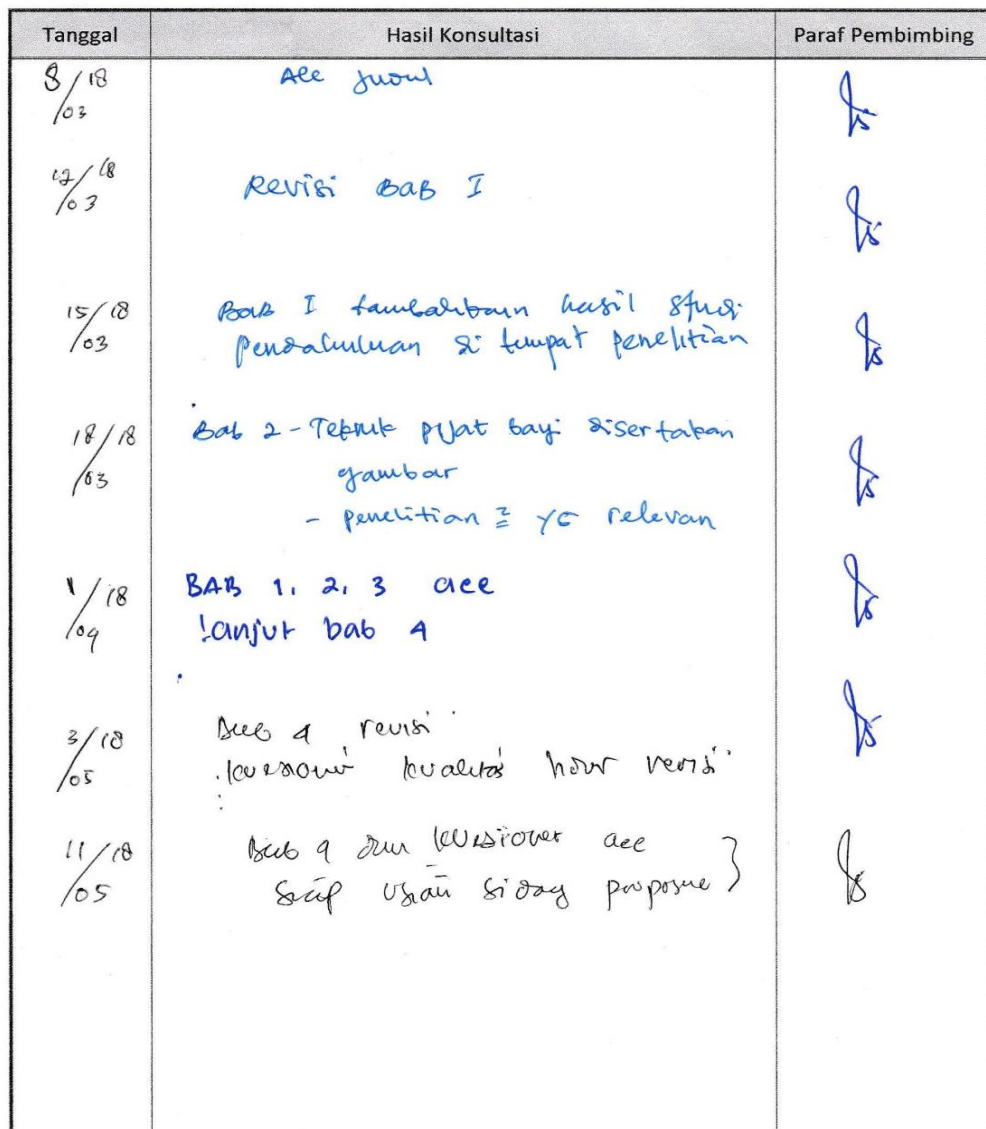 Tanggal Hasil Konsultasi Paraf Pembimbing
8/18 Acc Judul
/03
12/18 Revisi BAB I
/03
15/18 Bab I tambahkan hasil studi
/03 pendahuluan di tempat penelitian
18/18 Bab 2 - Teknik pijat bayi disertakan
/03 gambar
- penelitian 2 yg relevan
1/18 BAB 1, 2, 3 acc
/04 lanjut bab 4
3/18 Bab 4 revisi
/05 kuesioner kualitas revisi
11/18 Bab 4 dan kuesioner acc
/05 Siap ujian sidang proposal }